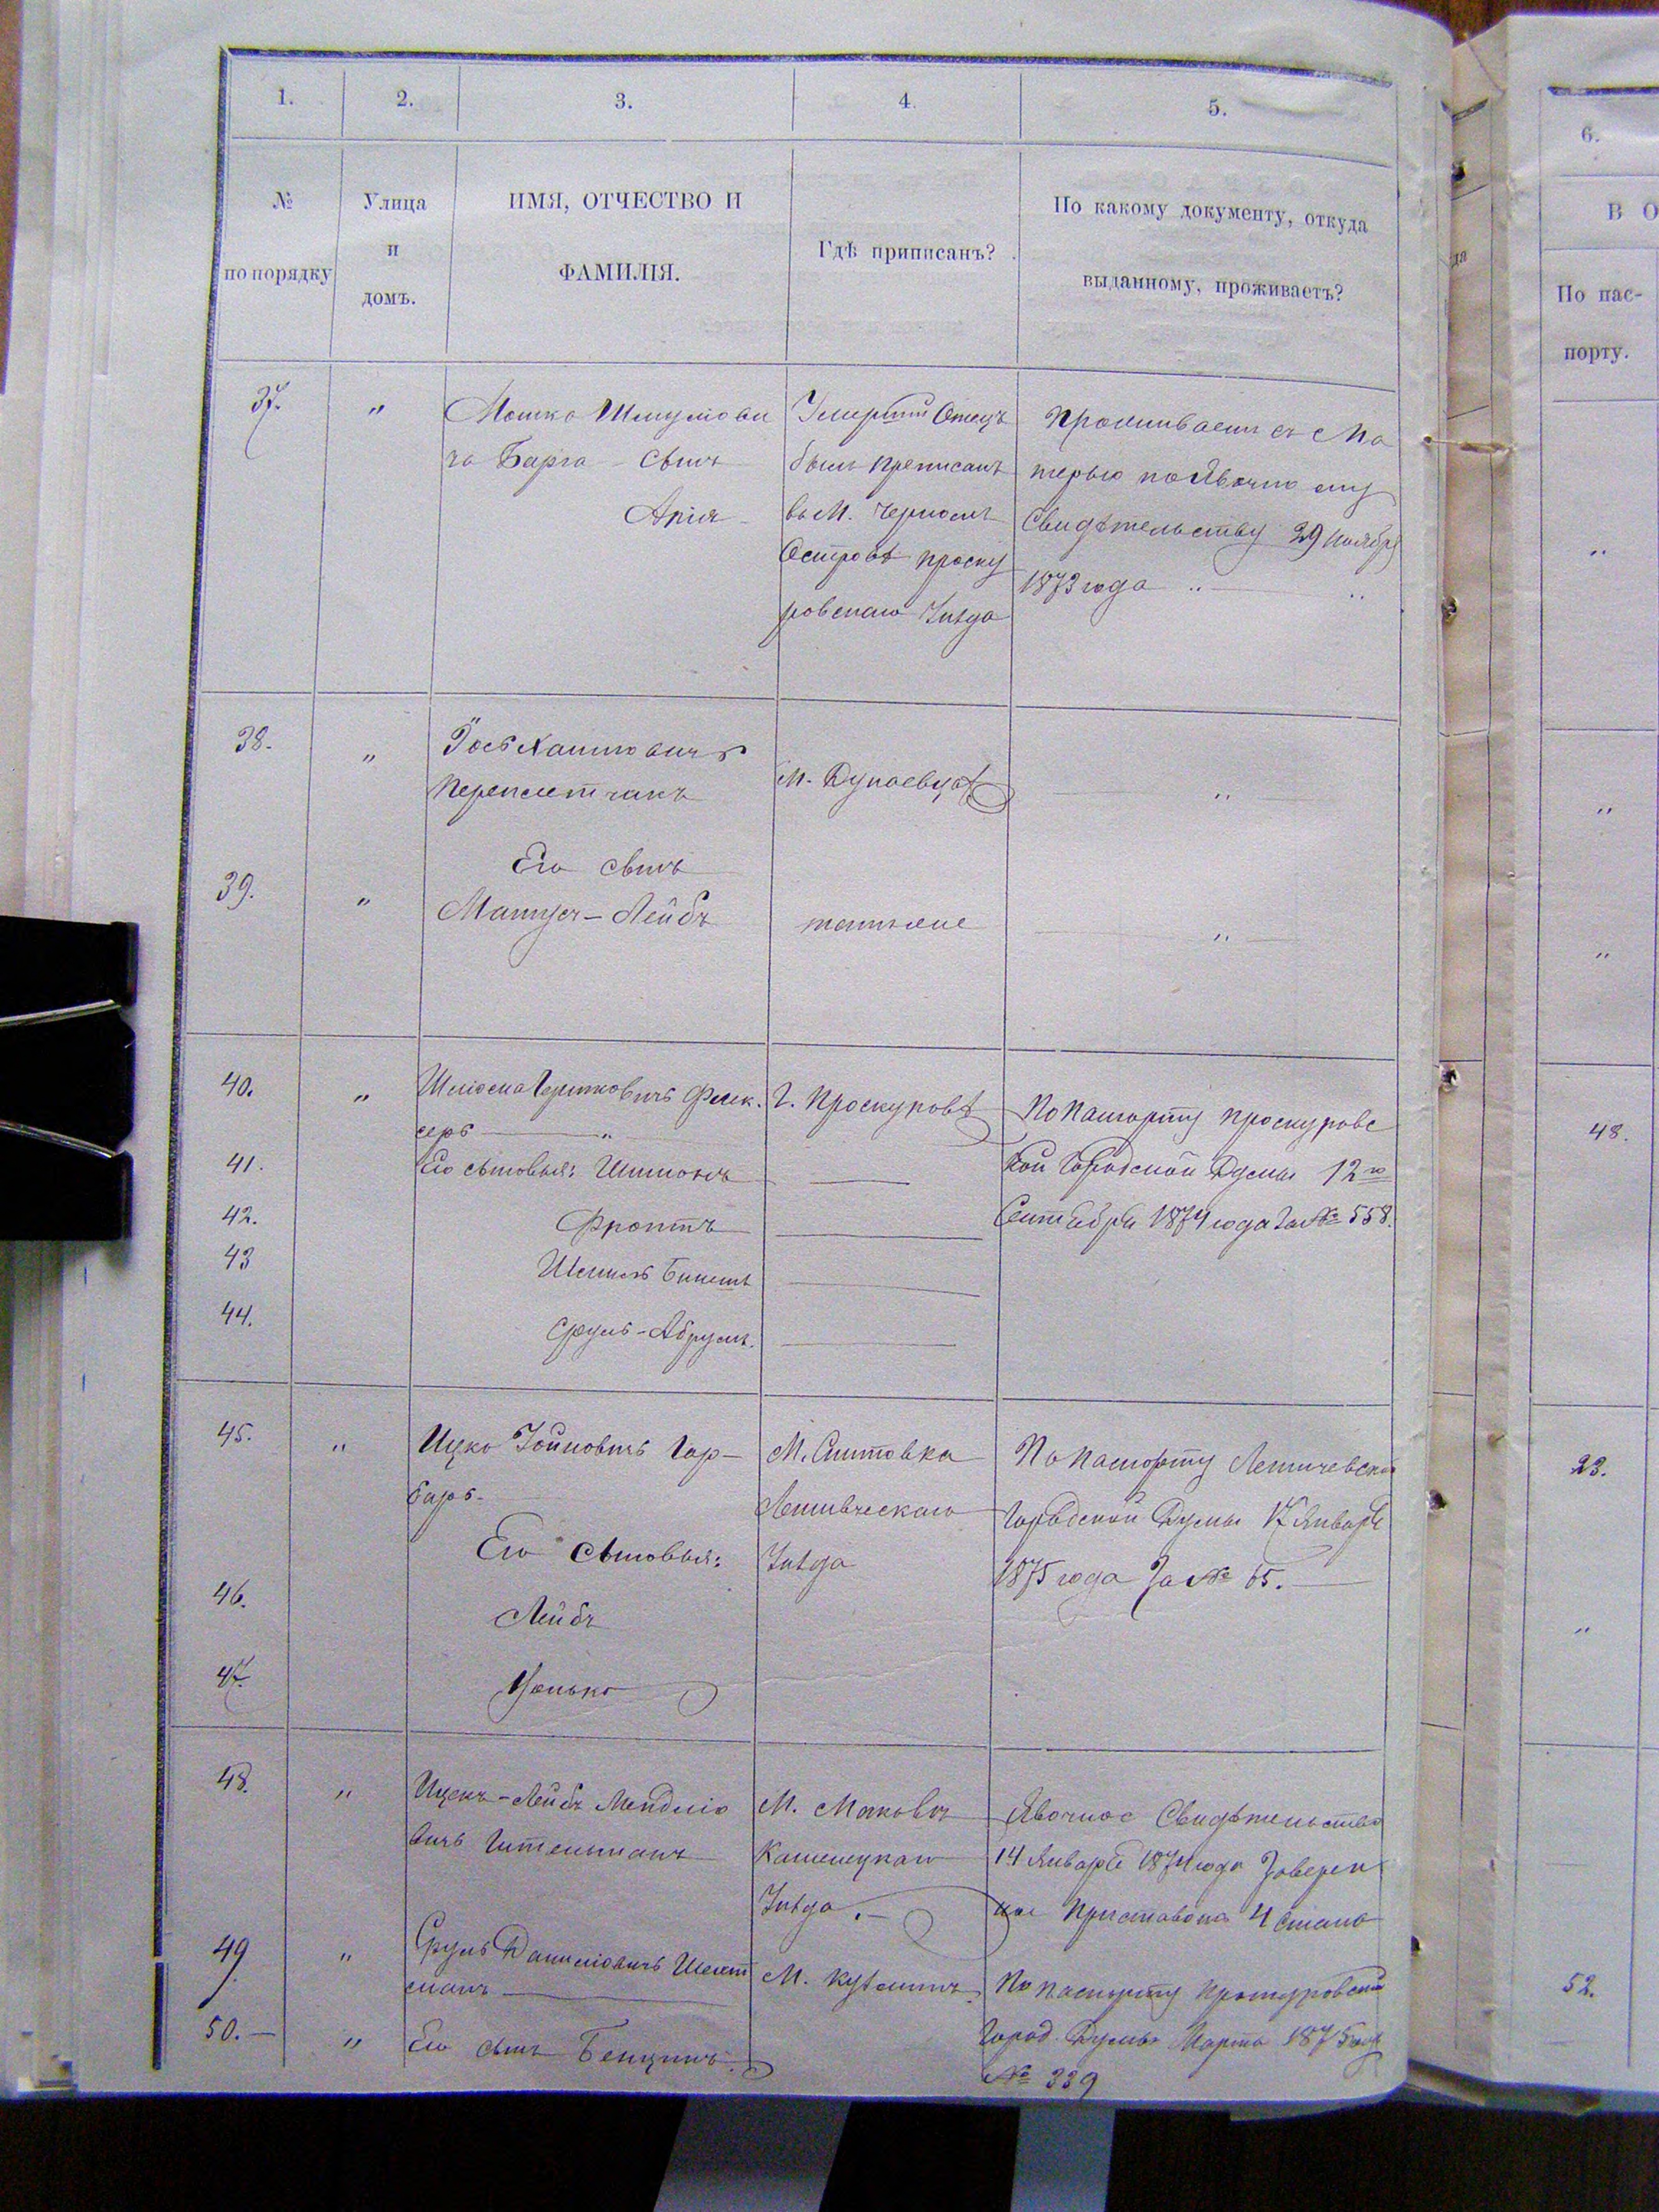 1. 2. 3. 4. 5.
№ по порядку
Улица и домъ.
ИМЯ, ОТЧЕСТВО И ФАМИЛІЯ.
Гдѣ приписанъ?
По какому документу, откуда выданному, проживаетъ?
37. "
Мошка Шмулови
ча Барга – Сынъ
Арія
Умершій Отецъ
былъ преписанъ
въ М. Черномъ
Островѣ проску
ровскаго Уѣзда
Проживаетъ съ Ма
терью по Явочно му
Свидѣтельству 29 Ноября
1873 года " "
38. "
Іось Хаимовичъ
Переплетчикъ
М. Дунаевцѣ
"
Его сынъ
39. "
Матусъ – Лейбъ
тотъ же
"
40. "
Шлиома Гершковичъ Флек.
серъ "
Г. Проскуровѣ
По Паспорту Проскуровс
кой Городской Думы 12го
Сентября 1874 года За № 558.
41. Его сыновья: Шимонъ
42. Фроимъ
43 Шмиль Бинемъ
44. Сруль – Абрумъ.
45. "
Ицко Іойновичъ Гар –
баръ.
М. Снитовка
Летичевскаго
Уѣзда
По паспорту Летичевской
Городской Думы 17 Января
1875 года За № 65.
Его сыновья:
46.
Лейбъ
47.
Ионько
48. "
Ицекъ – Лейбъ Мендліо
вичъ Гительманъ
М. Маковъ
Каменецкаго
Уѣзда.
Явочное Свидѣтельство
14 Января 1874 года Заверен
ное Приставомъ 4 Стана
49 "
Сруль Даниліовичъ Шехт
манъ
М. Кузминъ.
По паспорту Проскуровской
Город. Думы Марта 1875 года
№ 339
50. – "
Его сынъ Бенцинъ.
6.
В О
По пас-
порту.
"
"
"
48.
23.
"
52.